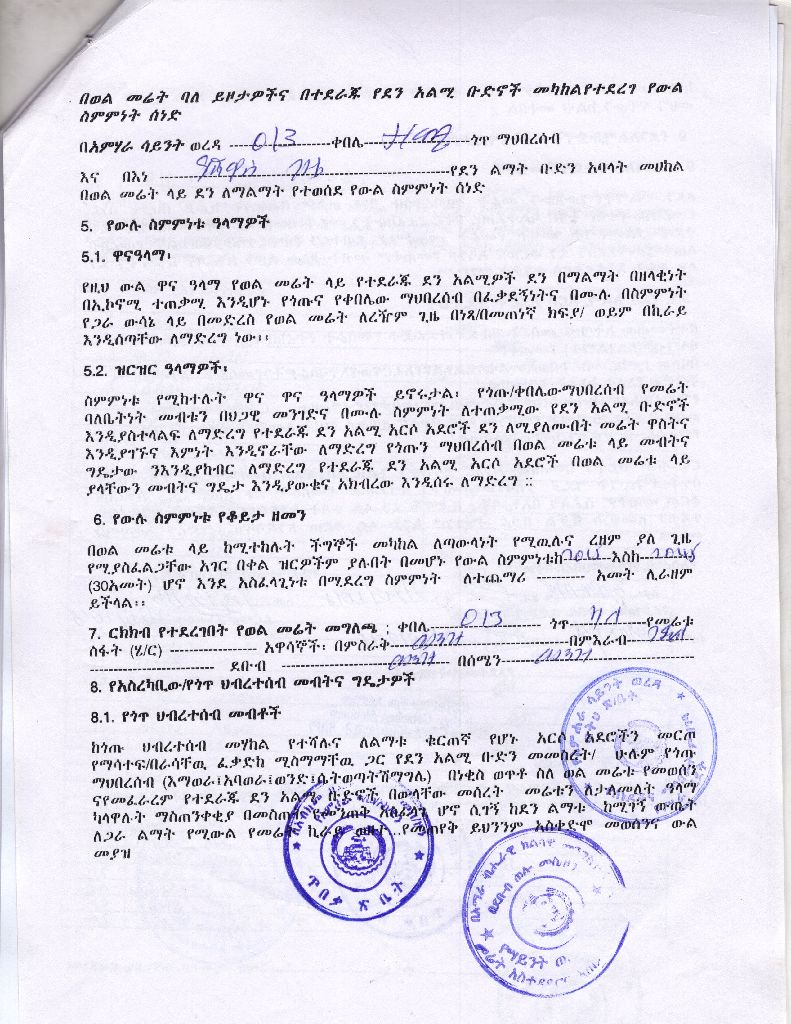 በወል መሬት ባለ ይዞታዎችና በተደራጁ የደን አልሚ ቡድኖች መካከልየተደረግ የውል
ስምምነት ሰነድ
በአምሃራ ሳይንት ወረዳ --------------------ቀበሌ------------------ጎጥ ማህበረሰብ
እና በእነ --------------------------------------------------የደን ልማት ቡድን አባላት መሀከል
በወል መሬት ላይ ደን ለማልማት የተወሰደ የውል ስምምነት ሰነድ
5. የውሉ ስምምነቱ ዓላማዎች
5.1. ዋናዓላማ፡
የዚህ ውል ዋና ዓላማ የወል መሬት ላይ የተደራጁ ደን አልሚዎች ደን በማልማት በዘላቂነት
በኢኮኖሚ ተጠቃሚ እንዲሆኑ የጎጡና የቀበሌው ማህበረሰብ በፈቃደኝነትና በሙሉ በስምምነት
የጋራ ውሳኔ ላይ በመድረስ የወል መሬት ለረዥም ጊዜ በነጻ/በመጠነኛ ክፍያ/ ወይም በኪራይ
እንዲሰጣቸው ለማድረግ ነው፡፡
5.2. ዝርዝር ዓላማዎች፡
ስምምነቱ የሚከተሉት ዋና ዋና ዓላማዎች ይኖሩታል፡ የጎጡ/ቀበሌውማህበረሰብ የመሬት
ባለቤትነት መብቱን በህጋዊ መንገድና በሙሉ ስምምነት ለተጠቃሚው የደን አልሚ ቡድኖች
እንዲያስተላልፍ ለማድረግ የተደራጁ ደን አልሚ አርሶ አደሮች ደን ለሚያለሙበት መሬት ዋስትና
እንዲያገኙና እምነት እንዲኖራቸው ለማድረግ የጎጡን ማህበረሰብ በወል መሬቱ ላይ መብትና
ግዴታው ንእንዲያከብር ለማድረግ የተደራጁ ደን አልሚ አርሶ አደሮች በወል መሬቱ ላይ
ያላቸውን መብትና ግዴታ እንዲያውቁና አክብረው እንዲሰሩ ለማድረግ ::
6. የውሉ ስምምነቱ የቆይታ ዘመን
በወል መሬቱ ላይ ከሚተከሉት ችግኞች መካከል ለጣውላነት የሚዉሉና ረዘም ያለ ጊዜ
የሚያስፈልጋቸው አገር በቀል ዝርዎችም ያሉበት በመሆኑ የውል ስምምነቱከ------እስከ------
(30አመት) ሆኖ እንደ አስፈላጊነቱ በሚደረግ ስምምነት ለተጨማሪ ---------- አመት ሊራዘም
ይችላል፡፡
7. ርክክብ የተደረገበት የወል መሬት መግለጫ ; ቀበሌ------------------ ጎጥ------------የመሬቱ
ስፋት (ሄ/ር) ------------------ አዋሳኞች፡ በምስራቅ------------------በምእራብ-----------
-------------------------- ደቡብ ---------------------- በሰሜን---------------------------
8. የአስረካቢው/የጎጥ ህብረተሰብ መብትና ግዴታዎች
8.1. የጎጥ ህብረተሰብ መብቶች
ከጎጡ ህብረተሰብ መሃከል የተሻሉና ለልማቱ ቁርጠኛ የሆኑ አርሶ አደሮችን መርጦ
የማሳተፍ/በራሳቸዉ ፈቃድከ ሚስማማቸዉ ጋር የደን አልሚ ቡድን መመስረት/ ሁሉም የጎጡ
ማህበረሰብ (እማወራ፤አባወራ፤ወንድ፤ሴትወጣትሽማግሌ) በነቂስ ወጥቶ ስለ ወል መሬቱ የመወሰን
ናየመፈራረም የተደራጁ ደን አልሚ ቡድኖች በውላቸው መሰረት መሬቱን ለታለመለት ዓላማ
ካላዋሉት ማስጠንቀቂያ
ለጋራ ልማት የሚውል የመሬት ኪራይ
መያዝ
ጥበቃ ጽ ቤት